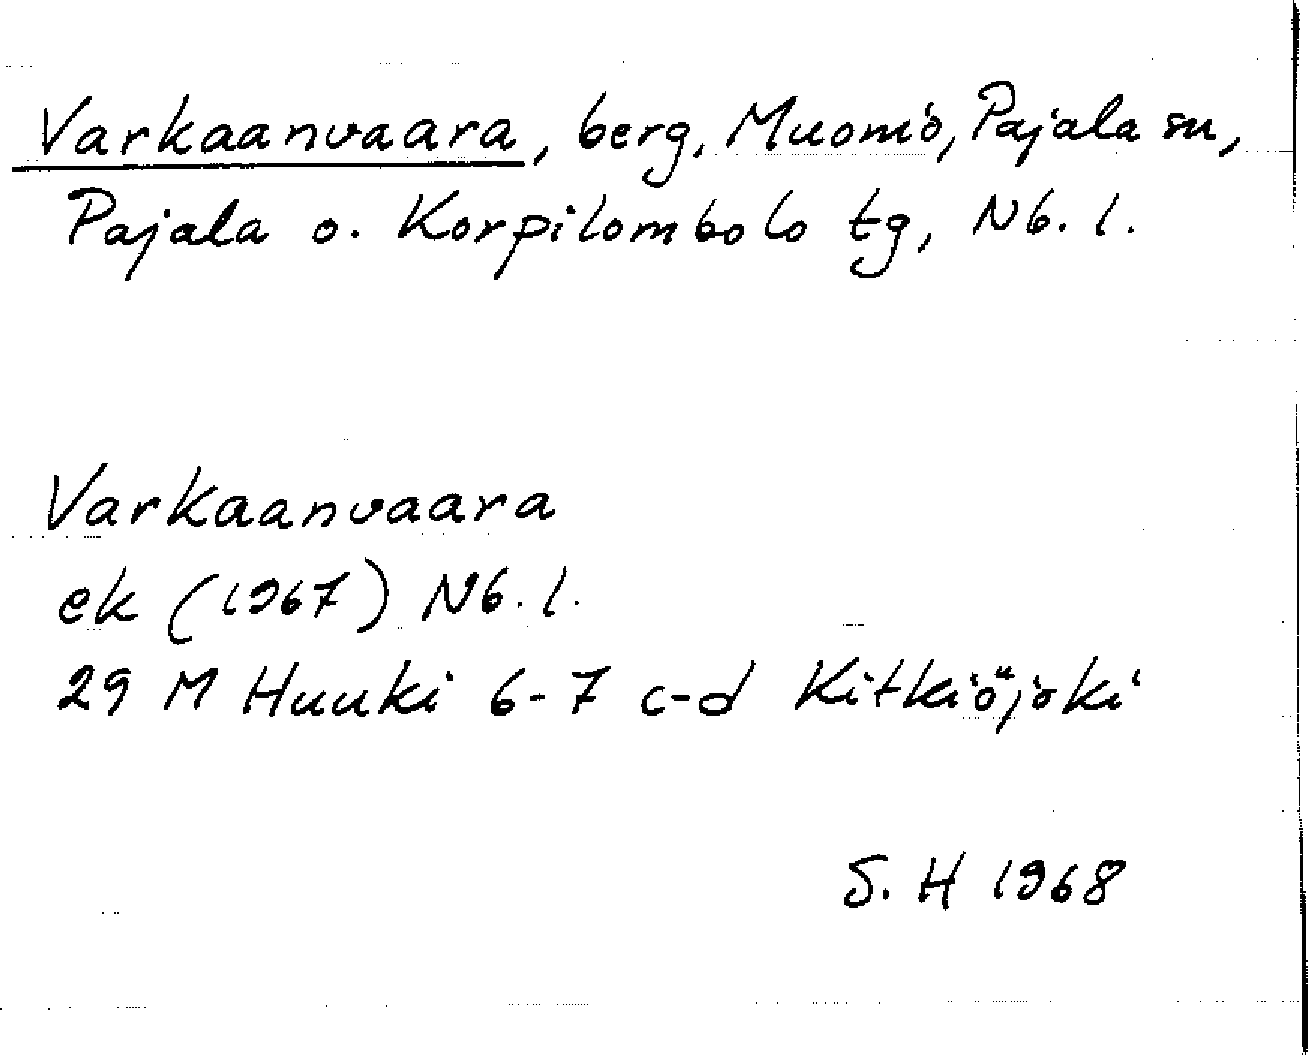 Varkaanvaara, berg, Muomio, Pajala sn,
Pajala o. Korpilombolo tg, Nb. l.
Varkaanvaara
ek (1967) Nb. l.
29 M Huuki 6-7 c-d Kitkiöjoki
S. H 1968